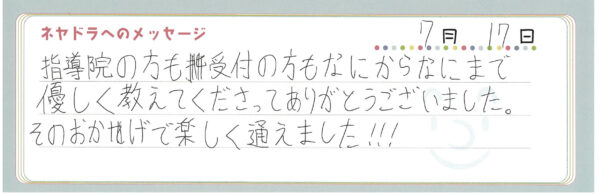 ネヤドラへのメッセージ
7月 17日
指導院の方も受付の方もなにからなにまで
優しく教えてくださってありがとうございました。
そのおかげで楽しく通えました!!!